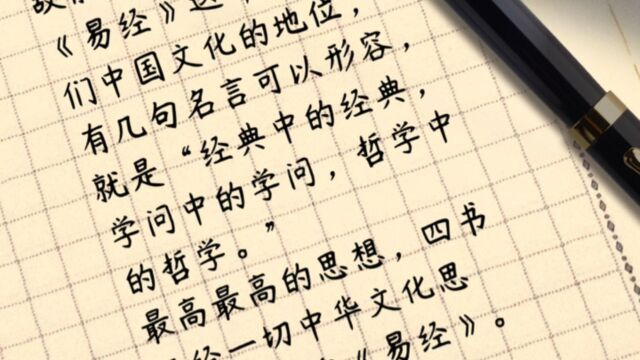 《易经》这
们中国文化的地位，
有几句名言可以形容，
就是“经典中的经典，
学问中的学问，哲学中
的哲学。”
最高最高的思想，四书
经一切中华文化思
《易经》。